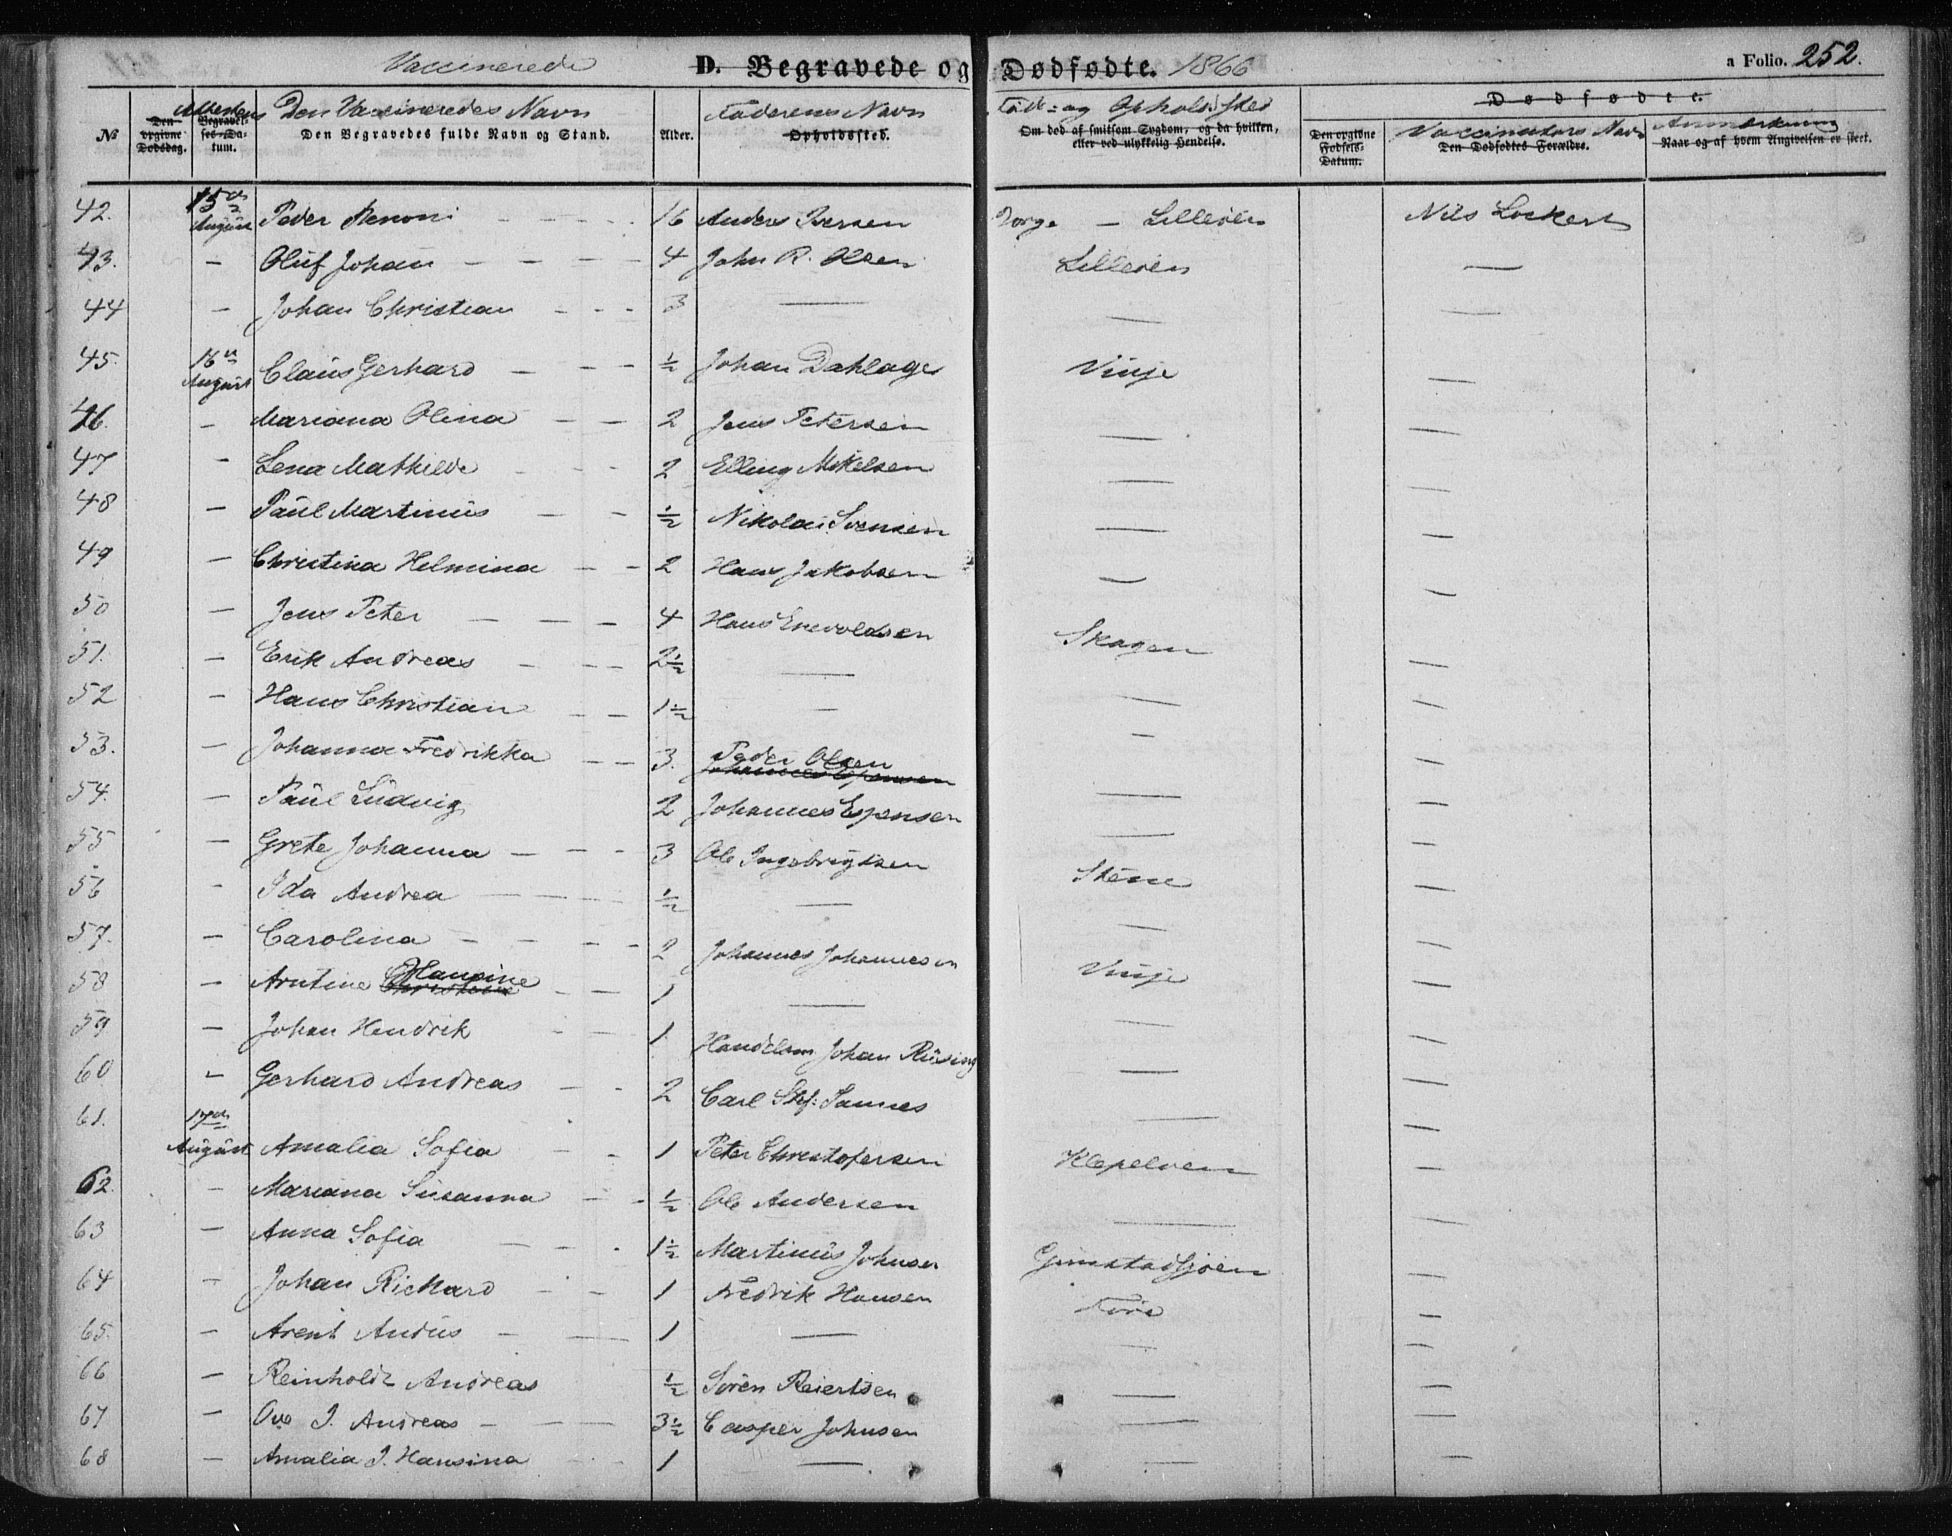 Vaccinerede D. Begravede og Dødfødte. 1866 a Folio. 252.
No Den opgivne Dødsdag. Attestens Begravelses-Datum. Den Vaccineredes Navn Den Begravedes fulde Navn og Stand. Alder. Faderens Navn Opholdssted. Føde- og Opholdssted Om død af smitsom Sygdom, og da hvilken, eller ved ulykkelig Hendelse. Dødfødte. Den opgivne Fødsels-Datum. Vaccinators Navn Den Dødfødtes Forældre. Anmærkning Naar og af hvem Angivelsen er skeet.
42. 15de August Peder Benoni - - - - 16 Anders Iversen Borge — Lilleøen Nils Lockert
43. — Oluf Johan - - - - 4 John R. Olsen Lilleøen —
44 — Johan Christian - - - 3 — — —
45. 16de August Claus Gerhard - - - ½ Johan Dahlager Vinje —
46. — Mariana Olina - - 2 Jens Petersen — —
47 — Lena Mathilde - - - 2 Elling Mikelsen — —
48 — Paul Martinus - - ½ Nikolai Svensen — —
49 — Christina Helmina - - 2 Hans Jakobsen — —
50 — Jens Peter - - - 4 Hans Enevoldsen Skagen —
51. — Erik Andreas - - - 2½ — — —
52 — Hans Christian - - 1½ — — —
53. — Johanna Fredrikka - - 3. Peder Olsen Johannes Espensen — —
54. — Paul Ludvig 2 Johannes Espensen — —
55 — Grete Johanna - - - 3 Ole Ingebrigtsen Stene —
56 — Ida Andrea - - ½ — — —
57. — Carolina - - - - 2 Johannes Johannesen Vinje —
58 — Arntine Hansine Christine - - 1 — — —
59 — Johan Hendrik - - 1 Handelsm Johan Rüsing — —
60 — Gerhard Andreas - - 2 Carl Stf: Samnes — —
61. 17de August Amalia Sofia - - 1 Peter Christofersen Klepeløen —
62. — Mariana Susanna - - ½ Ole Andersen — —
63 — Anna Sofia - - - 1½ Martinus Johnsen Gimstadsjøen —
64 — Johan Richard - - 1 Fredrik Hansen Føre —
65. — Arent Andus - — 1 — — —
66 — Reinholdt Andreas ½ Søren Reiertsen — —
67 — Ove J. Andreas - — 3½ Casper Johnsen — —
68 — Amalia J. Hansina - - 1 — — —